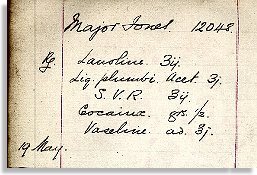 Major Jones. 12048.
℞ Lanoline ʒij.
Liq. plumbi. Acet. ʒj.
S.V.R. ʒij
Cocainæ. grs. ½.
Vaseline. ad. ℥j.
19 May.